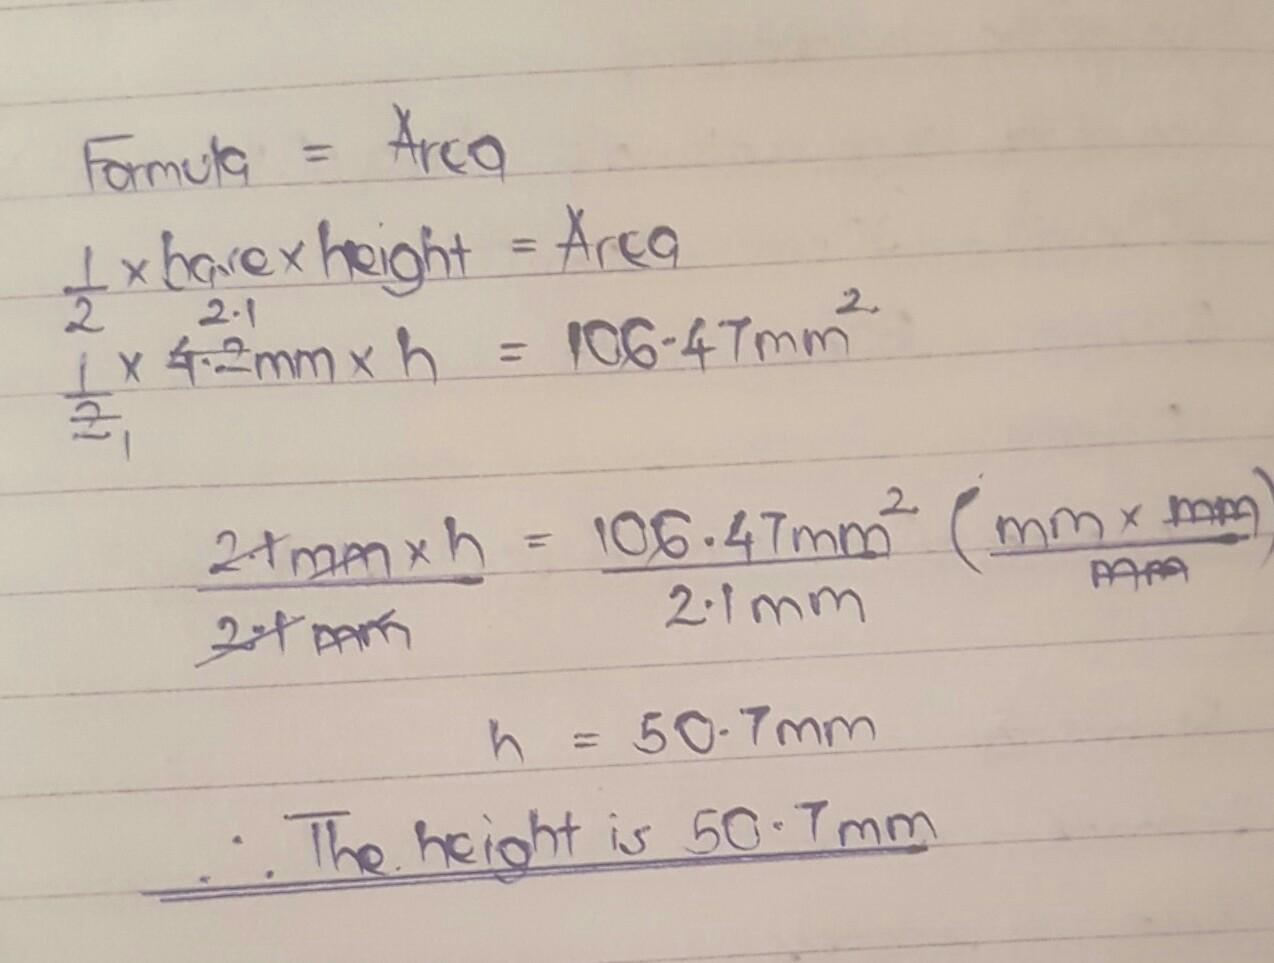 Formula = Area
1/2 x base x height = Area
2.1
1/2 x 4.2mm x h = 106.47mm²
1
2.1mm x h / 2.1mm = 106.47mm² / 2.1mm (mm x mm / mm)
h = 50.7mm
∴ The height is 50.7mm